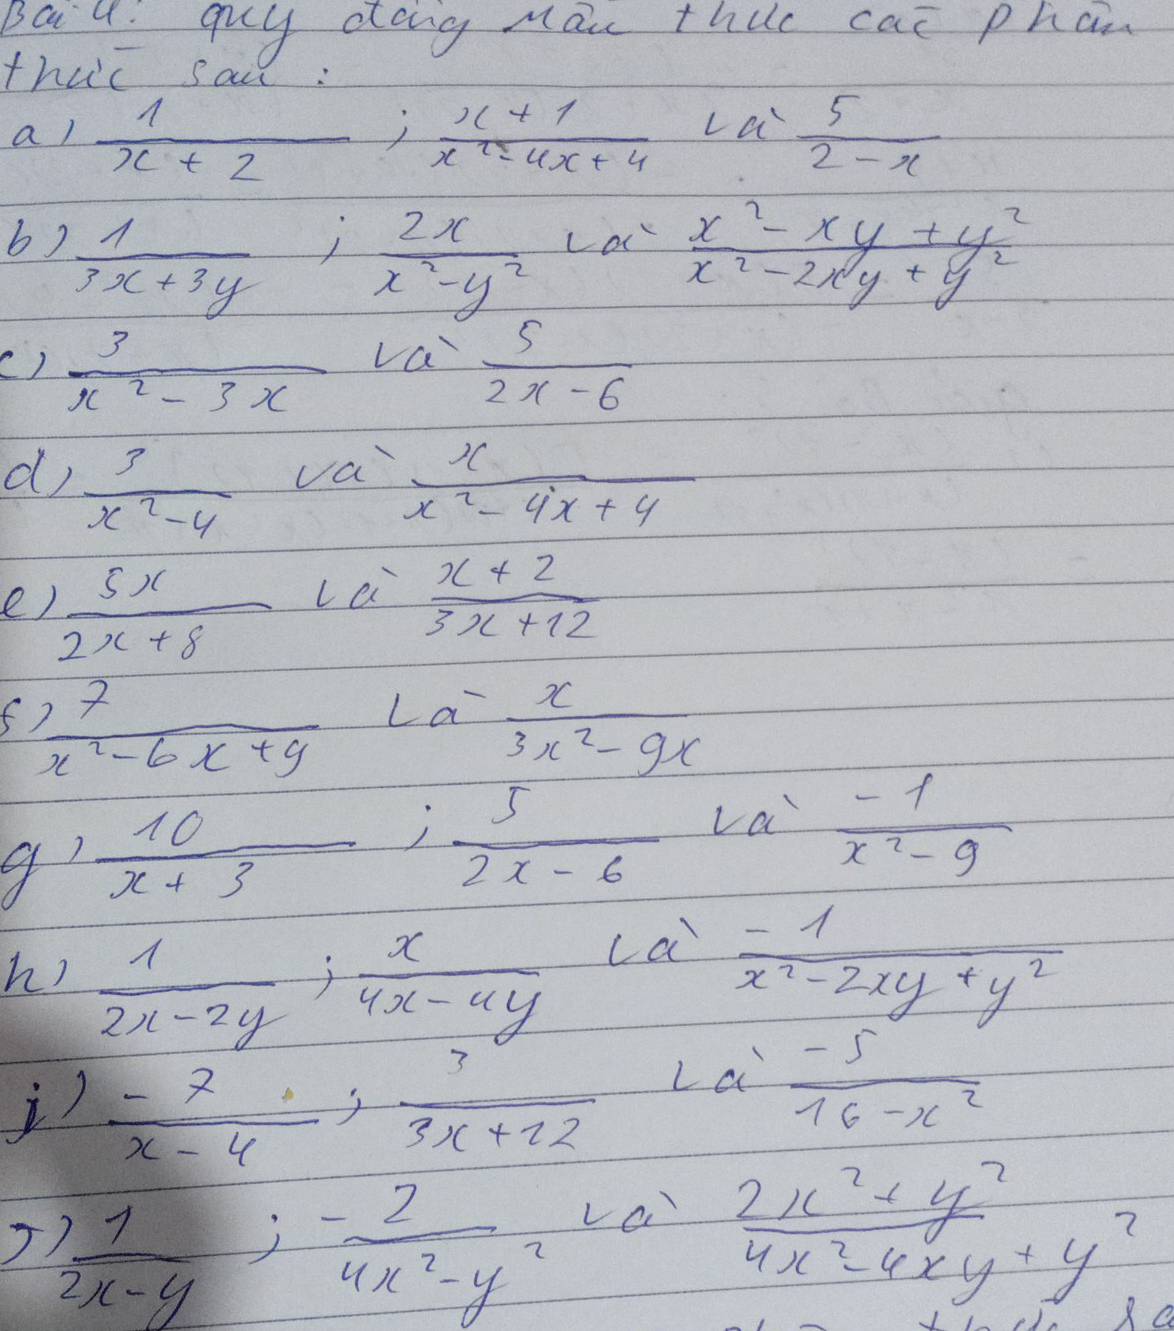 Bài 4: quy đồng mẫu thức các phân
thức sau :
a) 1/(x + 2) ; (x + 1)/(x² - 4x + 4) và 5/(2 - x)
b) 1/(3x + 3y) ; 2x/(x² - y²) và (x² - xy + y²)/(x² - 2xy + y²)
c) 3/(x² - 3x) và 5/(2x - 6)
d) 3/(x² - 4) và x/(x² - 4x + 4)
e) 5x/(2x + 8) và (x + 2)/(3x + 12)
f) 7/(x² - 6x + 9) và x/(3x² - 9x)
g) 10/(x + 3) ; 5/(2x - 6) và -1/(x² - 9)
h) 1/(2x - 2y) ; x/(4x - 4y) và -1/(x² - 2xy + y²)
i) -7/(x - 4) ; 3/(3x + 12) và -5/(16 - x²)
J) 1/(2x - y) ; -2/(4x² - y²) và (2x² + y²)/(4x² - 4xy + y²)